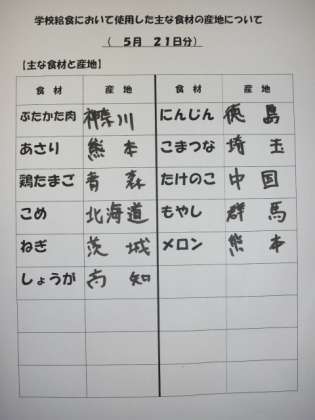 学校給食において使用した主な食材の産地について
( 5月 21日分)
【主な食材と産地】
食 材 産 地 食 材 産 地
ぶたかた肉 神奈川 にんじん 徳 島
あさり 熊 本 こまつな 埼 玉
鶏たまご 青 森 たけのこ 中 国
こめ 北海道 もやし 群 馬
ねぎ 茨 城 メロン 熊 本
しょうが 高 知